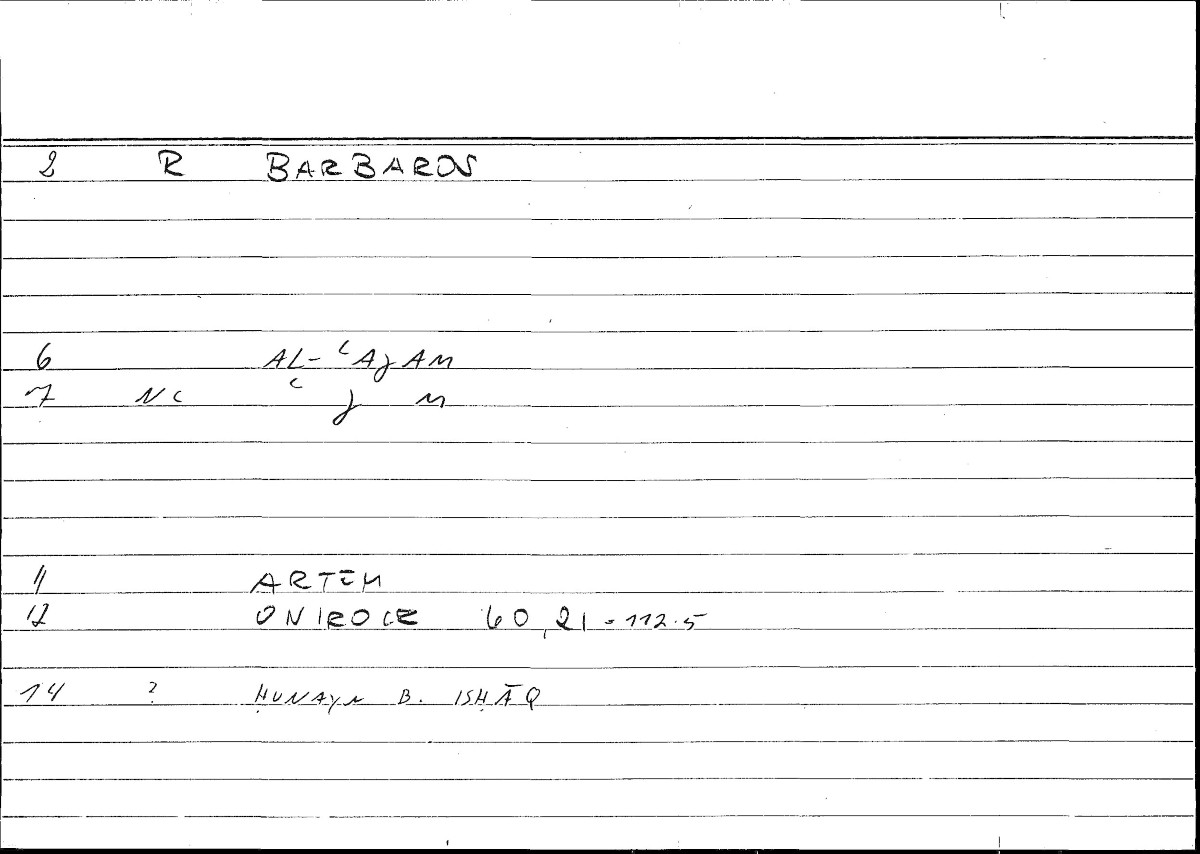 2 R BARBAROS
6 AL-ʿAJAM
7 NC ʿ J M
11 ARTEM
12 ONIROCR 60,21 = 112.5
14 ? ḤUNAYN B. ISḤĀQ